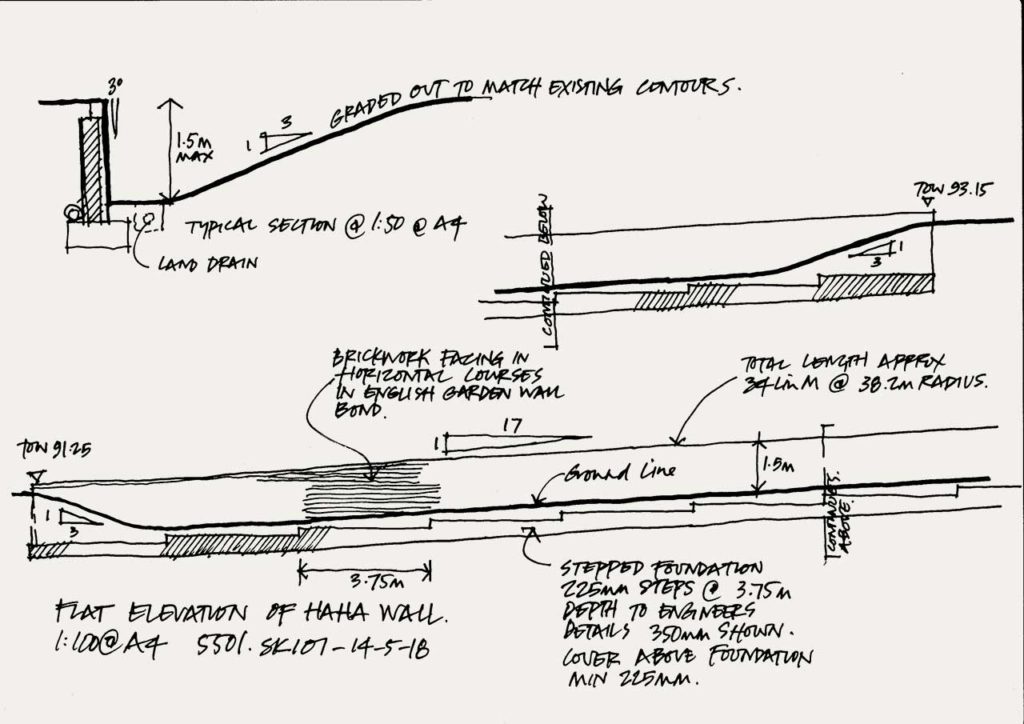 3°
GRADED OUT TO MATCH EXISTING CONTOURS.
3
1
1.5M
MAX
TYPICAL SECTION @ 1:50 @ A4
LAND DRAIN
TOW 93.15
CONTINUED BELOW
1
3
BRICKWORK FACING IN
HORIZONTAL COURSES
IN ENGLISH GARDEN WALL
BOND.
TOTAL LENGTH APPROX
34 Lin M @ 38.2m RADIUS.
17
1
TOW 91.25
1.5m
Ground Line
1
3
CONTINUES.
ABOVE.
3.75m
STEPPED FOUNDATION
225mm STEPS @ 3.75m
DEPTH TO ENGINEERS
DETAILS 350mm SHOWN.
COVER ABOVE FOUNDATION
MIN 225mm.
FLAT ELEVATION OF HAHA WALL.
1:100@A4 5501.SK107-14-5-18